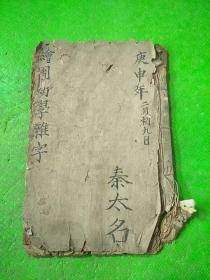 庚申年二月初九日
繪圖幼學雜字
秦大名